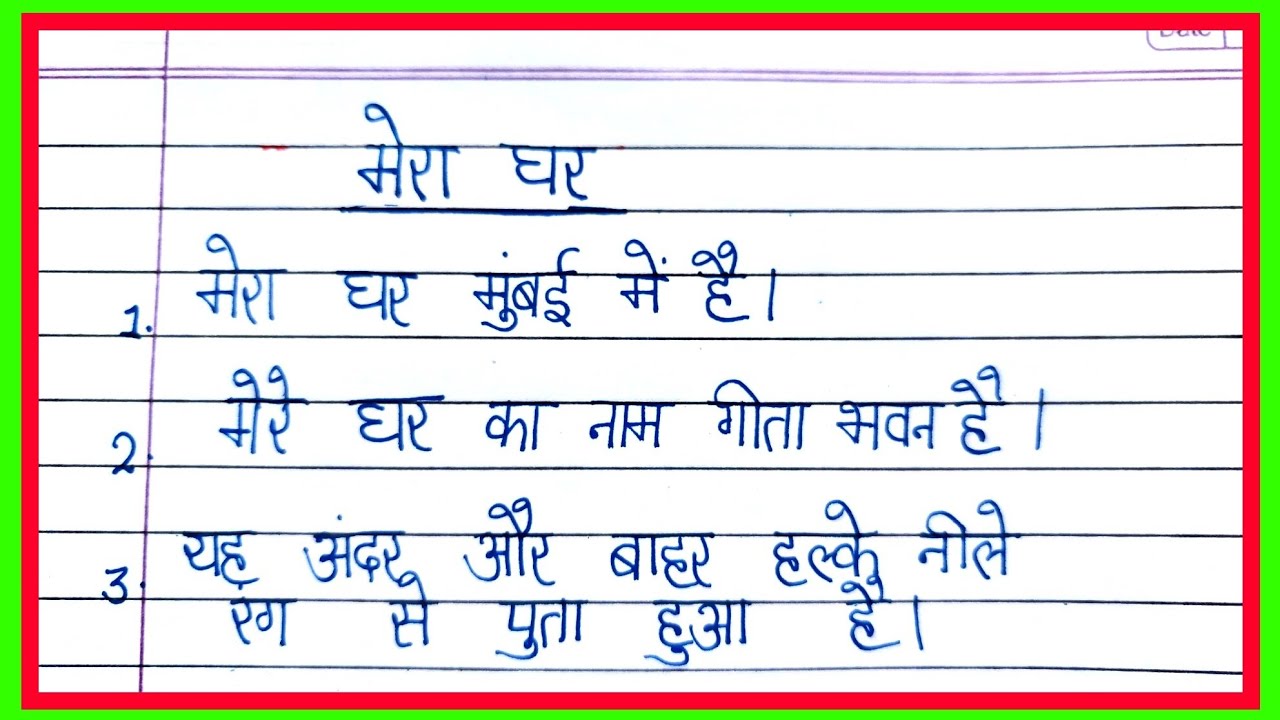 मेरा घर
1. मेरा घर मुंबई में है।
2. मेरे घर का नाम गीता भवन है।
3. यह अंदर और बाहर हल्के नीले
रंग से पुता हुआ है।